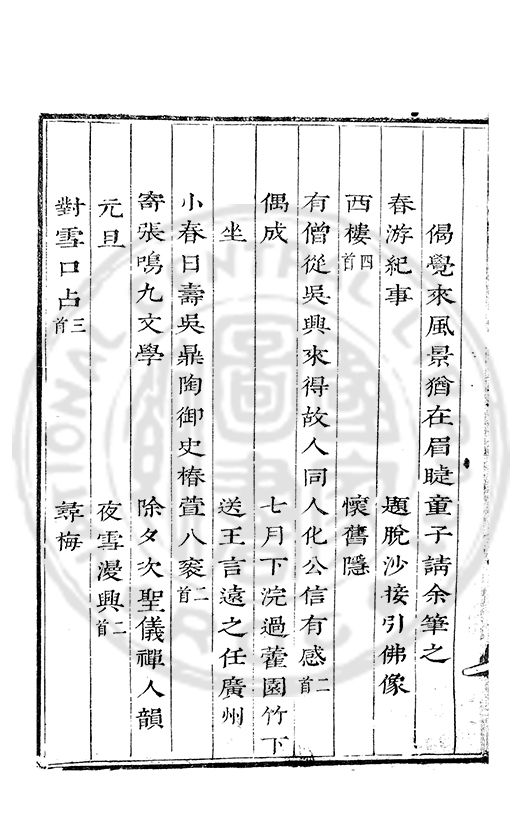 偈覺來風景猶在眉睫童子請余筆之
春游紀事　題脫沙接引佛像
西樓四首　懷舊隱
有僧從吳興來得故人同人化公信有感二首
偶成　七月下浣過藿園竹下
坐　送王言遠之任廣州
小春日壽吳鼎陶御史椿萱八袠二首
寄張鳴九文學　除夕次聖儀禪人韻
元旦　夜雪漫興二首
對雪口占三首　尋梅